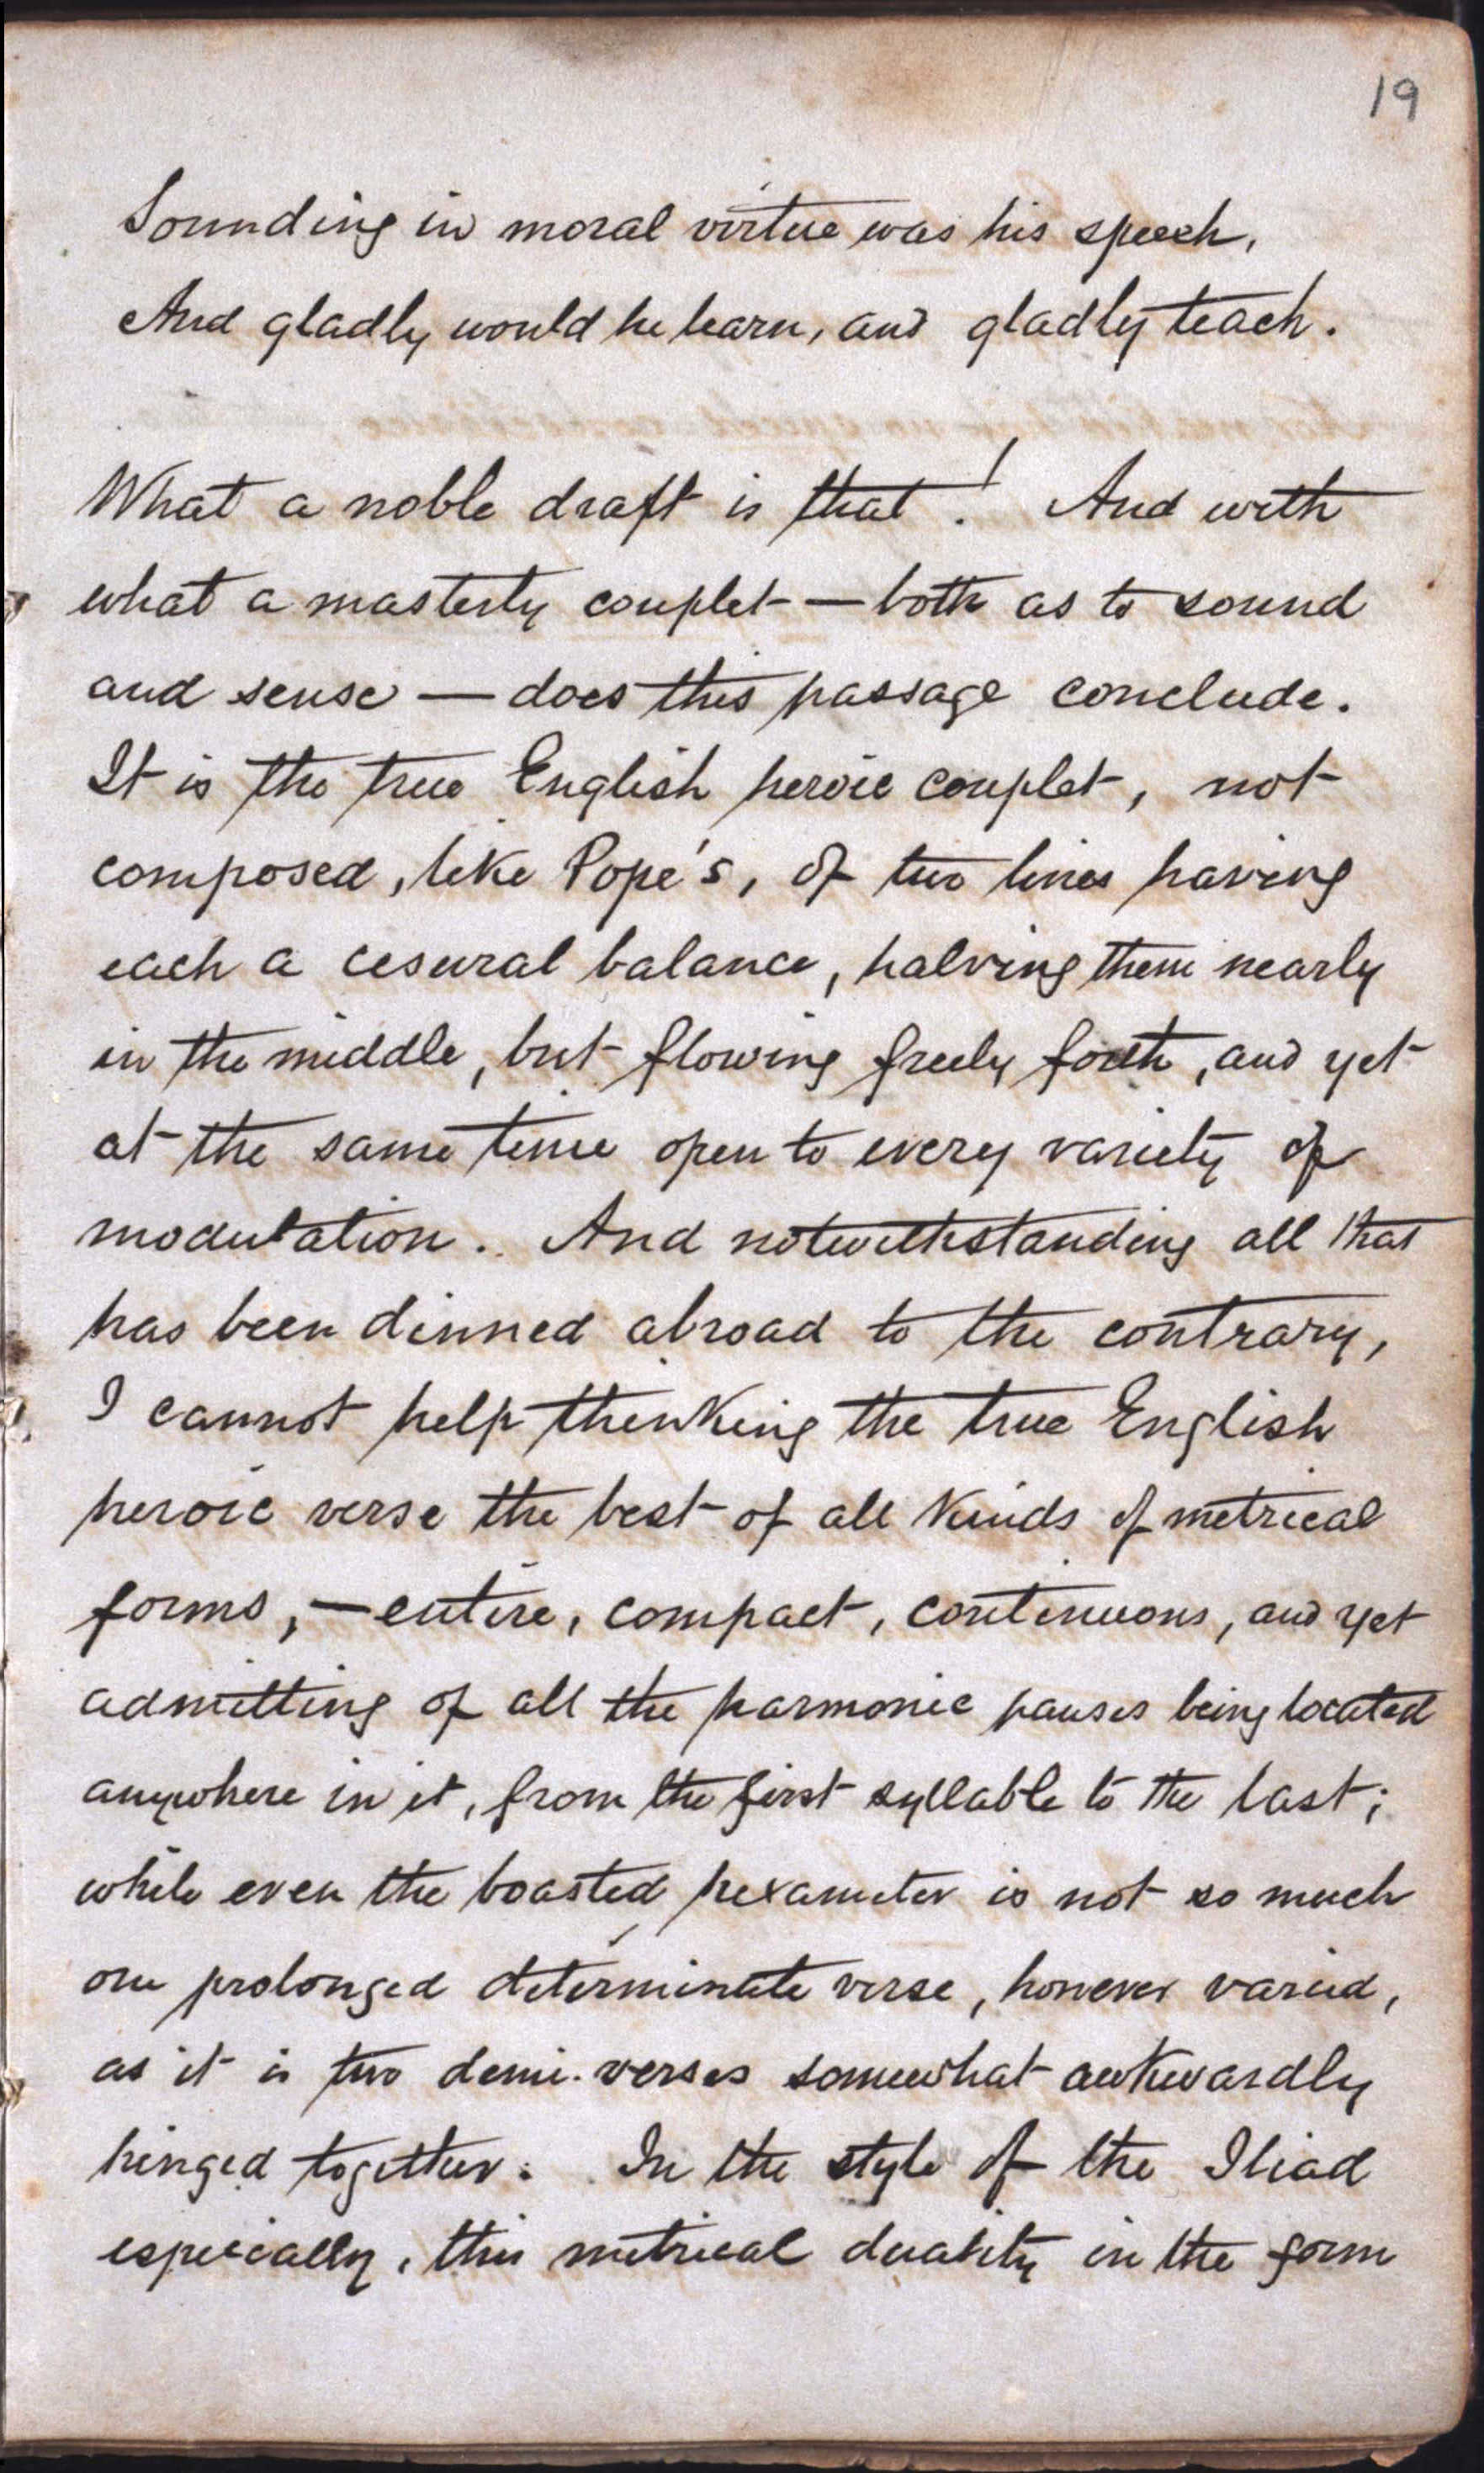 19
Sounding in moral virtue was his speech,
And gladly would he learn, and gladly teach.
What a noble draft is that! And with
what a masterly couplet — both as to sound
and sense — does this passage conclude.
It is the true English heroic couplet, not
composed, like Pope's, of two lines having
each a cesural balance, halving them nearly
in the middle, but flowing freely forth, and yet
at the same time open to every variety of
modulation. And notwithstanding all that
has been dinned abroad to the contrary,
I cannot help thinking the true English
heroic verse the best of all kinds of metrical
forms, — entire, compact, continuous, and yet
admitting of all the harmonic pauses being located
anywhere in it, from the first syllable to the last;
while even the boasted hexameter is not so much
one prolonged determinate verse, however varied,
as it is two demi-verses somewhat awkwardly
hinged together. In the style of the Iliad
especially, this metrical duality in the form